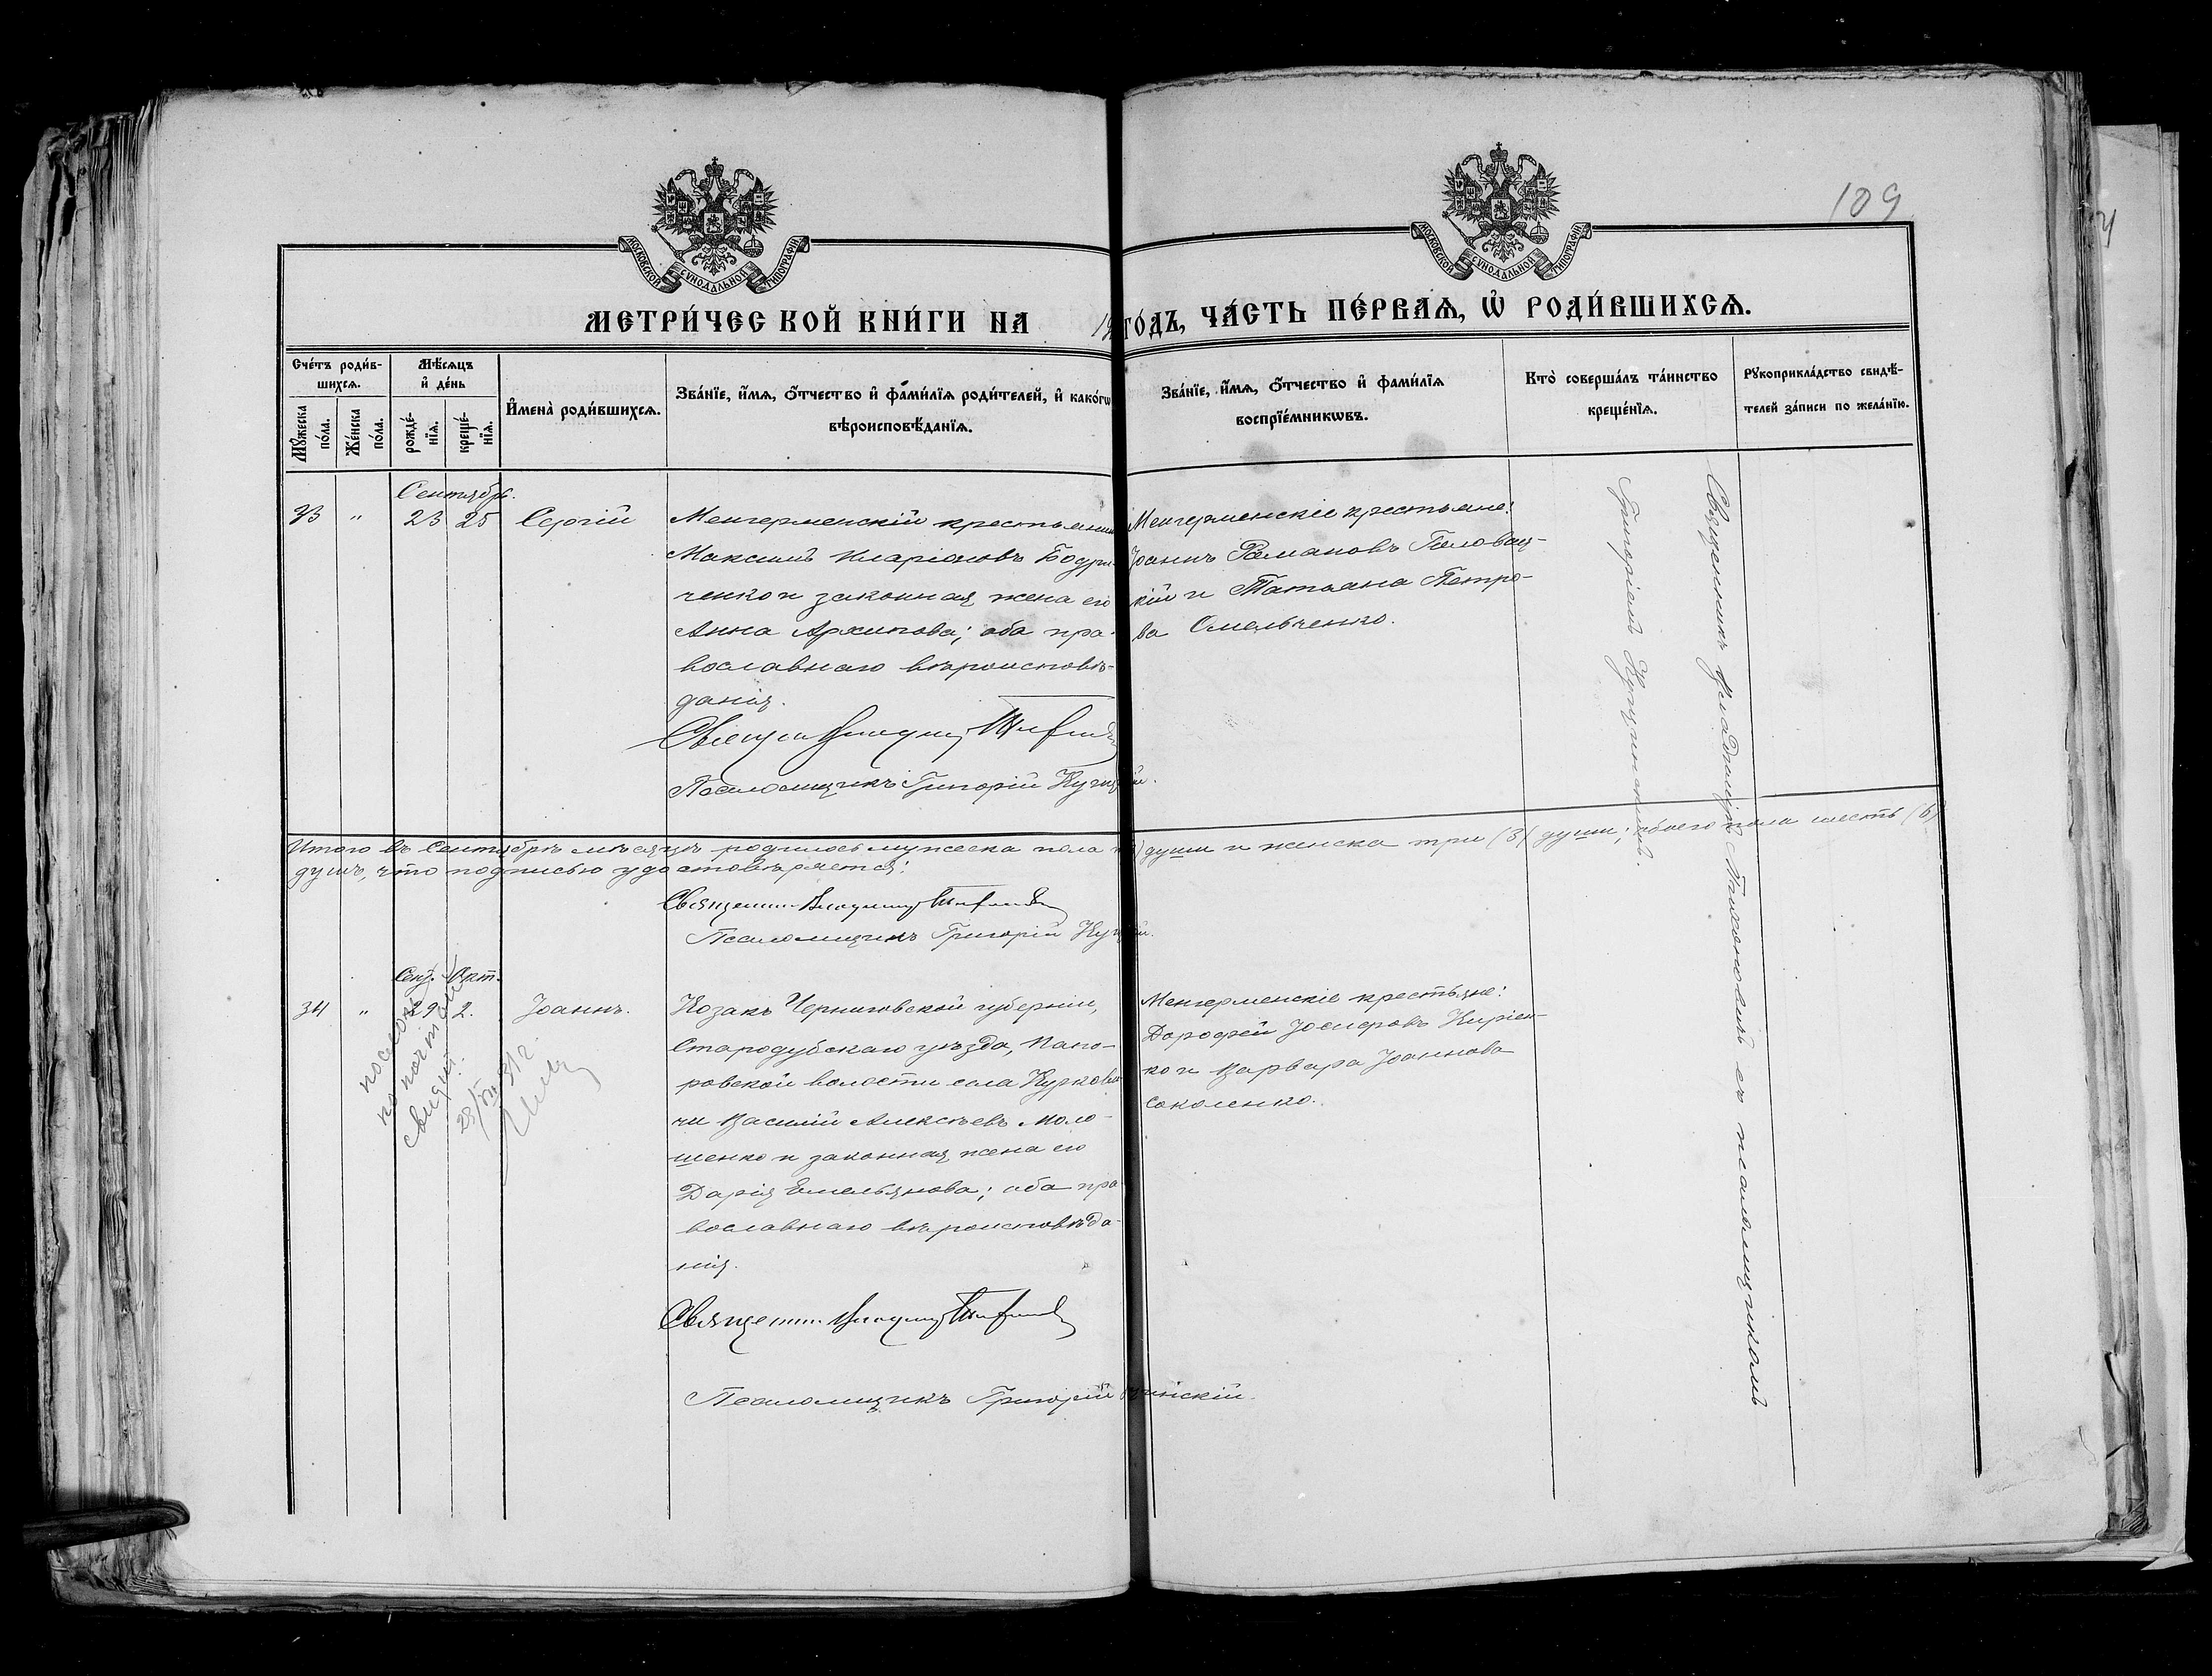 109
МОСКОВСКОЙ СѴНОДАЛЬНОЙ ТИПОГРАФІИ
МОСКОВСКОЙ СѴНОДАЛЬНОЙ ТИПОГРАФІИ
МЕТРИ́ЧЕСКОЙ КНИ́ГИ НА 19 ГО́ДЪ, ЧА́СТЬ ПЕ́РВАѦ, Ѡ҆ РОДИ́ВШИХСѦ.
Сче́тъ роди́в-
шихсѧ.
Мꙋ́жеска по́ла.
Же́нска по́ла.
Мѣ́сѧцъ
и҆ де́нь
рожде́-
нїѧ.
креще́-
нїѧ.
И҆мена̀ роди́вшихсѧ.
Зва́нїе, и҆́мѧ, ѻ҆́тчество и҆ фами́лїѧ роди́телей, и҆ како́гѡ
вѣроисповѣ́данїѧ.
Зва́нїе, и҆́мѧ, ѻ҆́тчество и҆ фами́лїѧ
воспрїе́мникѡвъ.
Кто̀ соверша́лъ та́инство
креще́нїѧ.
Рꙋкоприкла́дство свидѣ́-
телей за́писи по жела́нїю.
Сентябрь.
33 " 23 25 Сергій
Менгерменскій крестьянин
Максимъ Иларіоновъ Бодри-
ченко и законная жена его
Анна Архипова; оба пра-
вославнаго вѣроисповѣ-
данія.
Псаломщикъ Григорій
Менгерменскіе крестьяне:
Іоаннъ Романовъ Головац-
кій и Татьяна Петро-
ва Омельченко.
Священникъ Владиміръ съ псаломщикомъ
Григоріемъ
Итого въ Сентябрѣ мѣсяцѣ родилось мужеска пола души и женска три (3) души; обоего пола шесть (6)
душъ, что подписью удостовѣряется:
Священн. Владимир
Псаломщикъ Григорій
Сент. Окт.
34 " 29 2. Іоаннъ.
Козакъ Черниговской губерніи,
Стародубскаго уѣзда, Напо-
ровской волости села Курков
чи Василій Алексѣевъ Моло-
шенко и законная жена его
Дарія Емельянова; оба пра
вославнаго вѣроисповѣда-
нія.
Священн. Владимир
Псаломщикъ Григорій
Менгерменскіе крестьяне:
Дорофей Іосифовъ Кирien-
ко и Варвара Іоаннова
Соколенко.
по почт
свидѣт.
23/VIII 31 г.